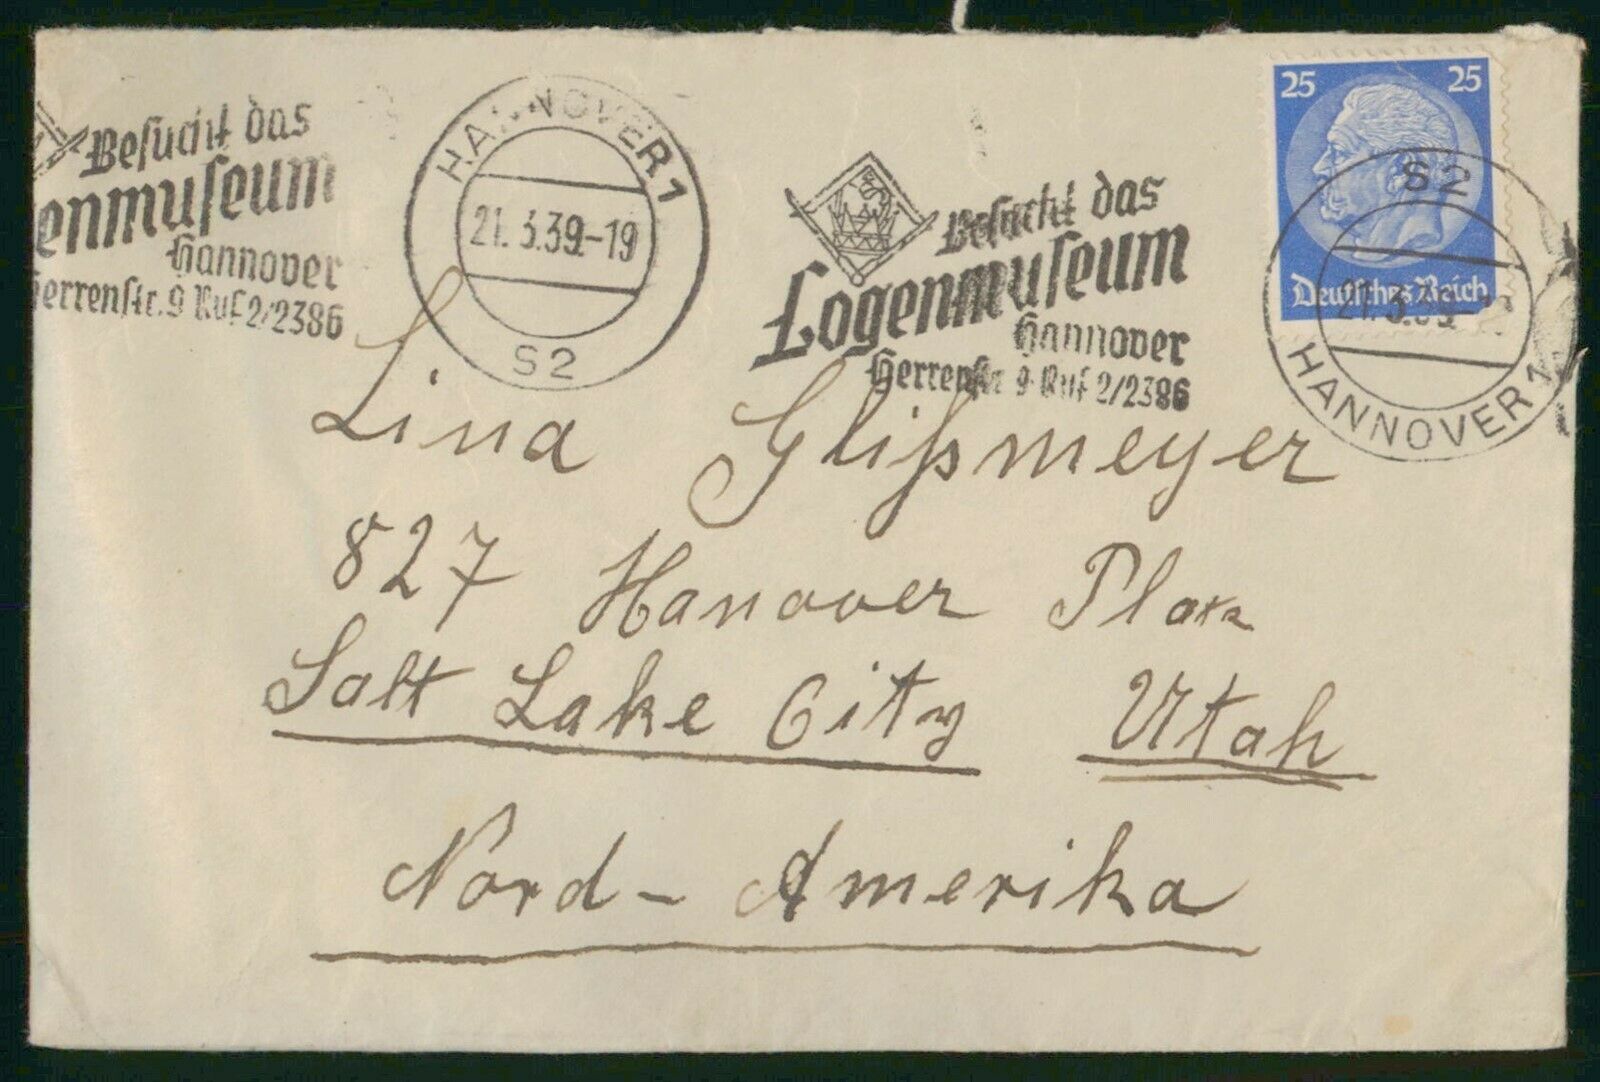 Besucht das
enmuseum
Hannover
Herrenstr. 9 Ruf 2/2386
HANNOVER 1
21. 3.39.-19
S2
Besucht das
Logenmuseum
Hannover
Herrenstr. 9 Ruf 2/2386
25 25
Deutsches Reich
S2
21. 3.39.-
HANNOVER 1
Lina Glißmeyer
827 Hanover Place
Salt Lake City Utah
Nord-Amerika